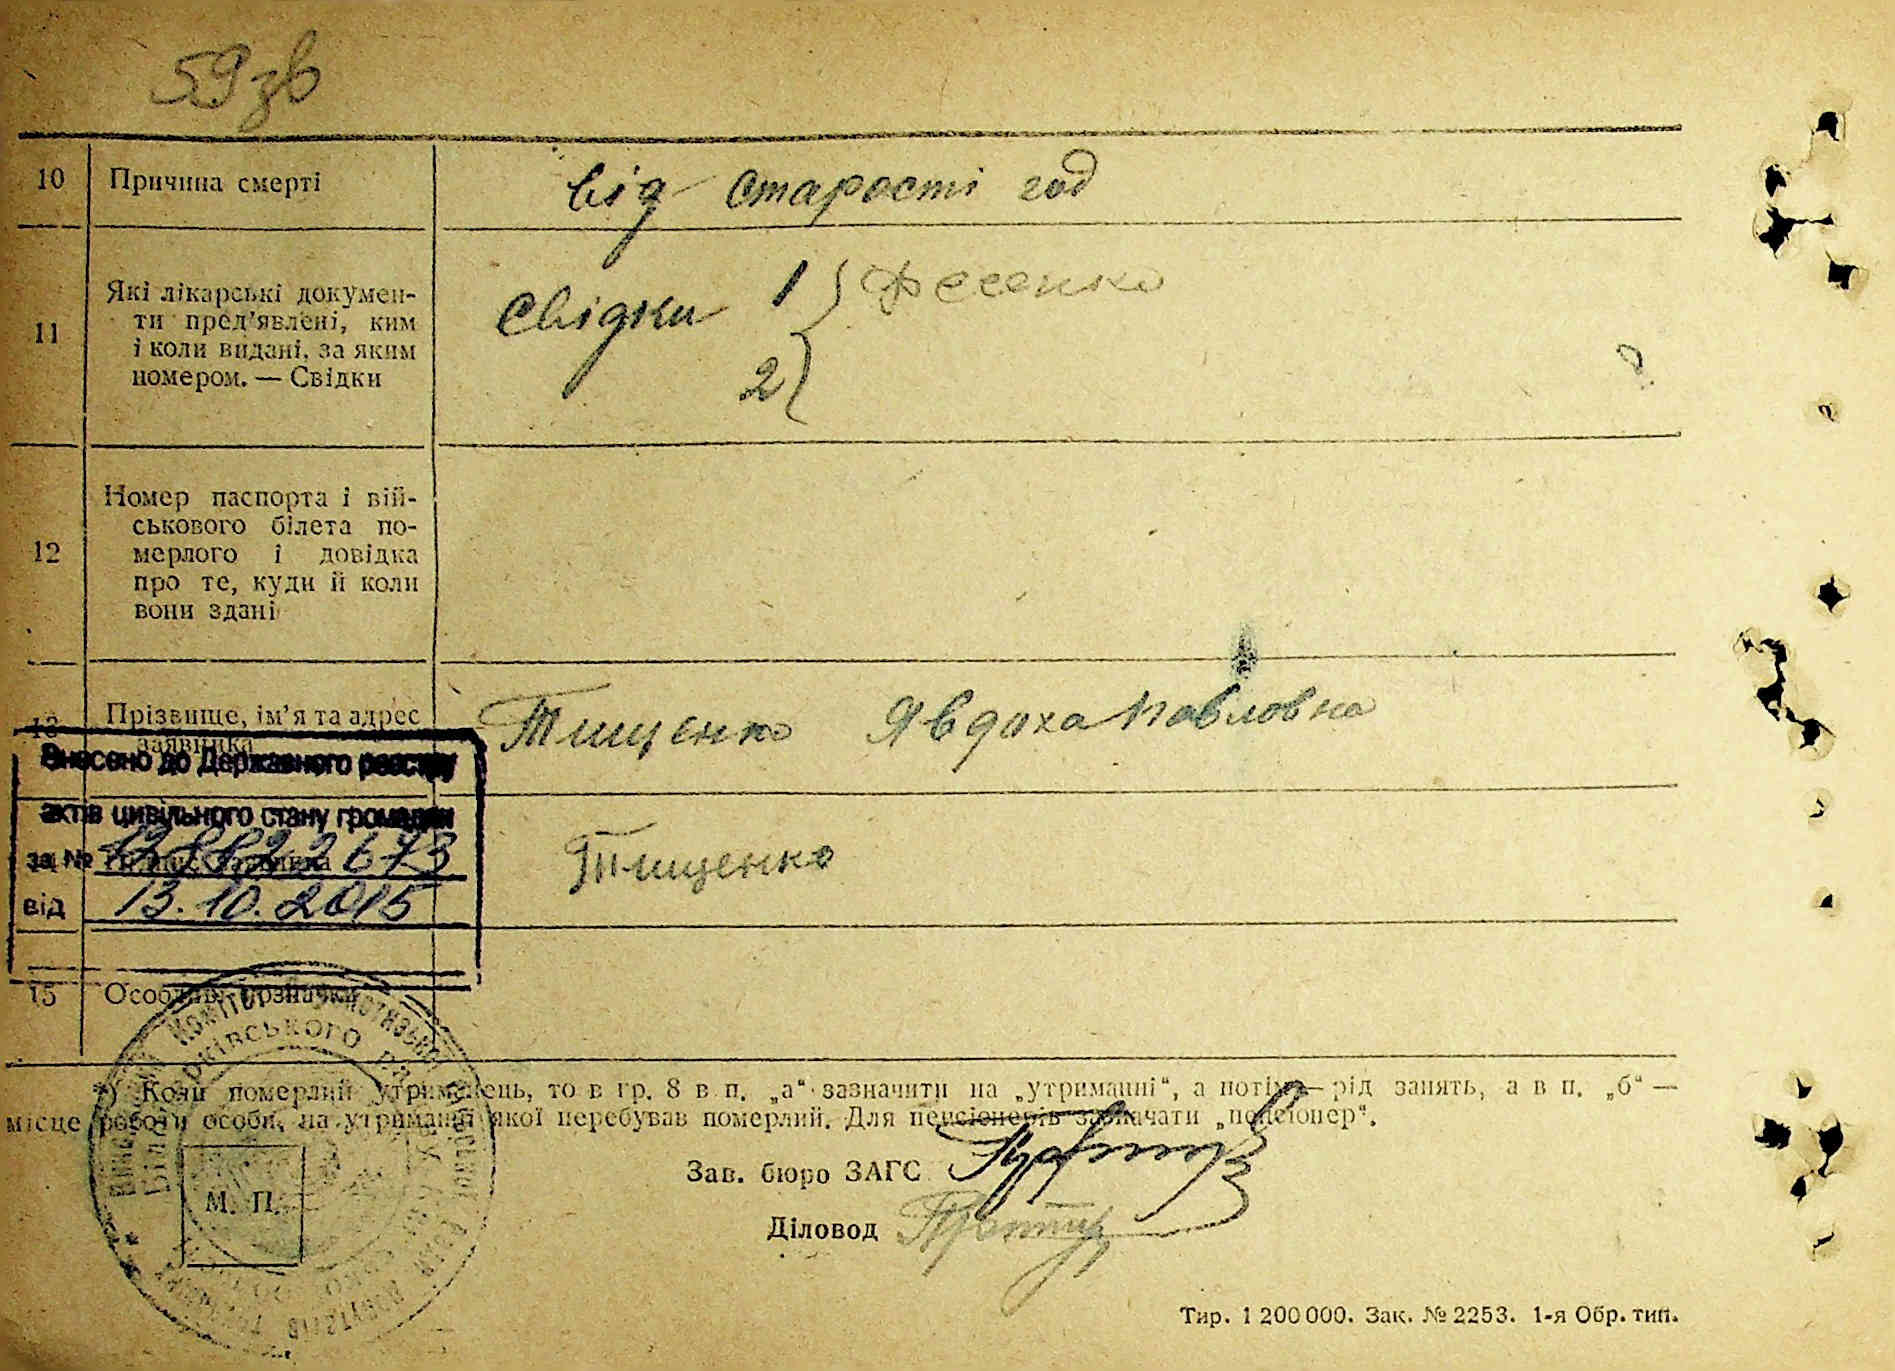 59 зв
10 Причина смерті від старості год
11 Які лікарські докумен-
ти пред’явлені, ким
і коли видані, за яким
номером. — Свідки
Свідки 1 } Фесенко
2
12 Номер паспорта і вій-
ськового білета по-
мерлого і довідка
про те, куди й коли
вони здані
13 Прізвище, ім’я та адрес
заявника
Тищенко Явдоха Павловна
Внесено до Державного реєстру
актів цивільного стану громадян
за №
від 13.10.2015
Тищенко
15 Особливі позначки
*) Коли померлий утриманець, то в гр. 8 в п. „а“ зазначити на „утриманні“, а потім — рід занять, а в п. „б“ —
місце роботи особи, на утриманні якої перебував померлий. Для пенсіонерів зазначати „пенсіонер“.
Зав. бюро ЗАГС
М. П.
Діловод
Тир. 1 200 000. Зак. № 2253. 1-я Обр. тип.